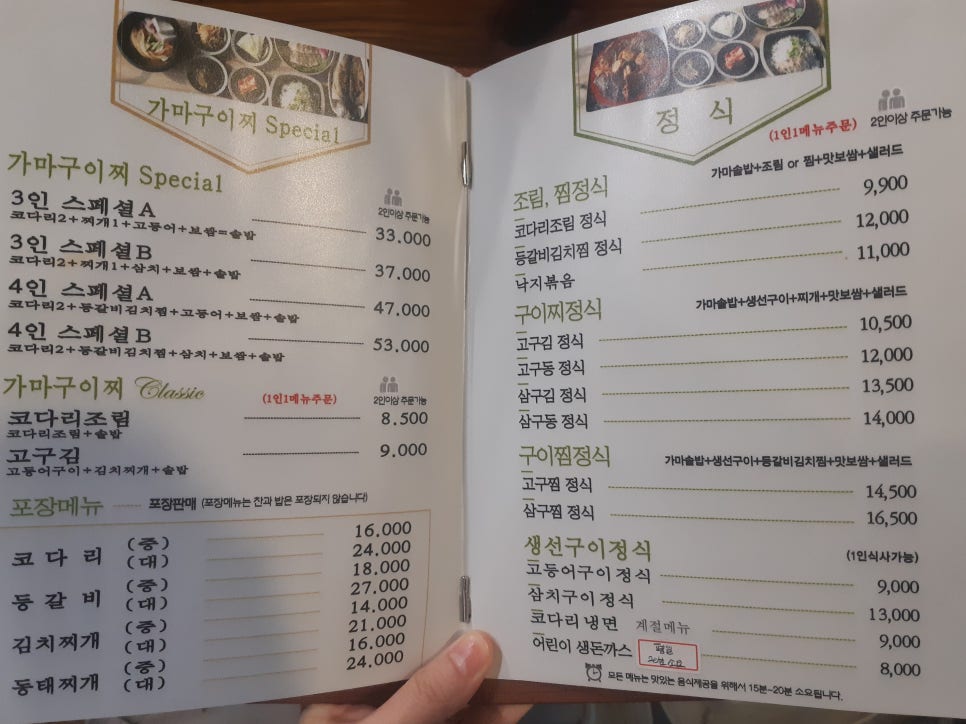 가마구이찌 Special
가마구이찌 Special
3인 스페셜A
코다리2+찌개1+고등어+보쌈=솥밥
2인이상 주문가능
33.000
3인 스페셜B
코다리2+찌개1+삼치+보쌈+솥밥
37.000
4인 스페셜A
코다리2+등갈비김치찜+고등어+보쌈+솥밥
47.000
4인 스페셜B
코다리2+등갈비김치찜+삼치+보쌈+솥밥
53.000
가마구이찌 Classic
(1인1메뉴주문)
2인이상 주문가능
코다리조림
8.500
코다리조림+솥밥
고구김
9.000
고등어구이+김치찌개+솥밥
포장메뉴 포장판매 (포장메뉴는 찬과 밥은 포장되지 않습니다)
코다리 (중) 16.000
(대) 24.000
등갈비 (중) 18.000
(대) 27.000
김치찌개 (중) 14.000
(대) 21.000
동태찌개 (중) 16.000
(대) 24.000
정 식
(1인1메뉴주문)
2인이상 주문가능
조림, 찜정식
가마솥밥+조림 or 찜+맛보쌈+샐러드
코다리조림 정식 9,900
등갈비김치찜 정식 12,000
낙지볶음 11,000
구이찌정식
가마솥밥+생선구이+찌개+맛보쌈+샐러드
고구김 정식 10,500
고구동 정식 12,000
삼구김 정식 13,500
삼구동 정식 14,000
구이찜정식
가마솥밥+생선구이+등갈비김치찜+맛보쌈+샐러드
고구찜 정식 14,500
삼구찜 정식 16,500
생선구이정식
(1인식사가능)
고등어구이 정식 9,000
삼치구이 정식 13,000
코다리 냉면 계절메뉴 9,000
어린이 생돈까스 8,000
모든 메뉴는 맛있는 음식제공을 위해서 15분~20분 소요됩니다.